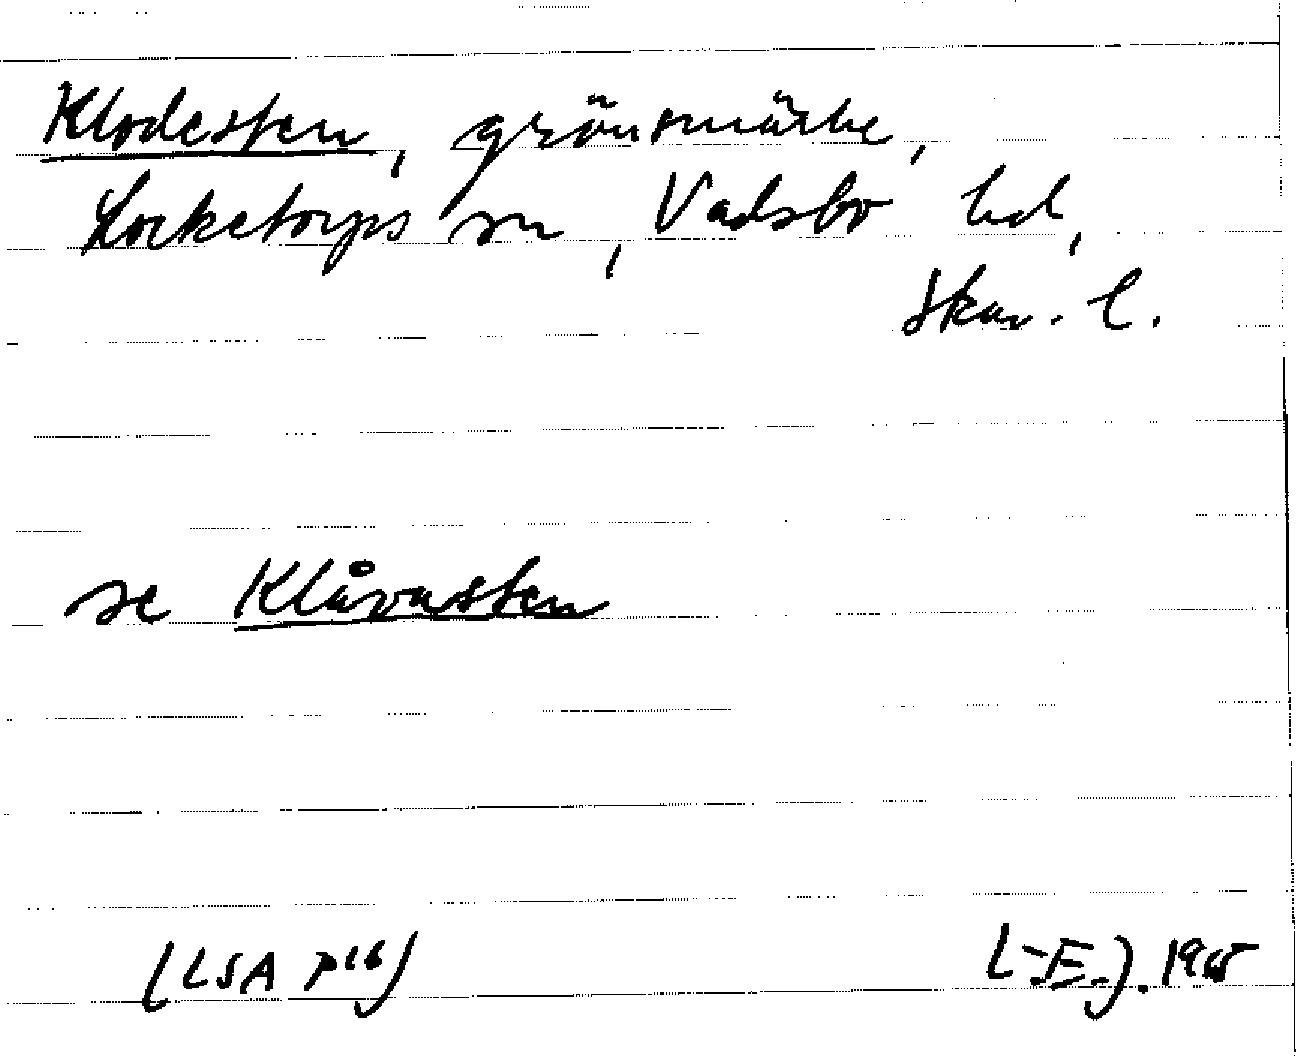 Klodesten, gränsmärke,
Locketorps sn, Vadsbo hd,
Skar. l.
se Klåvasten
(LSA P16)
L-E.J. 1965